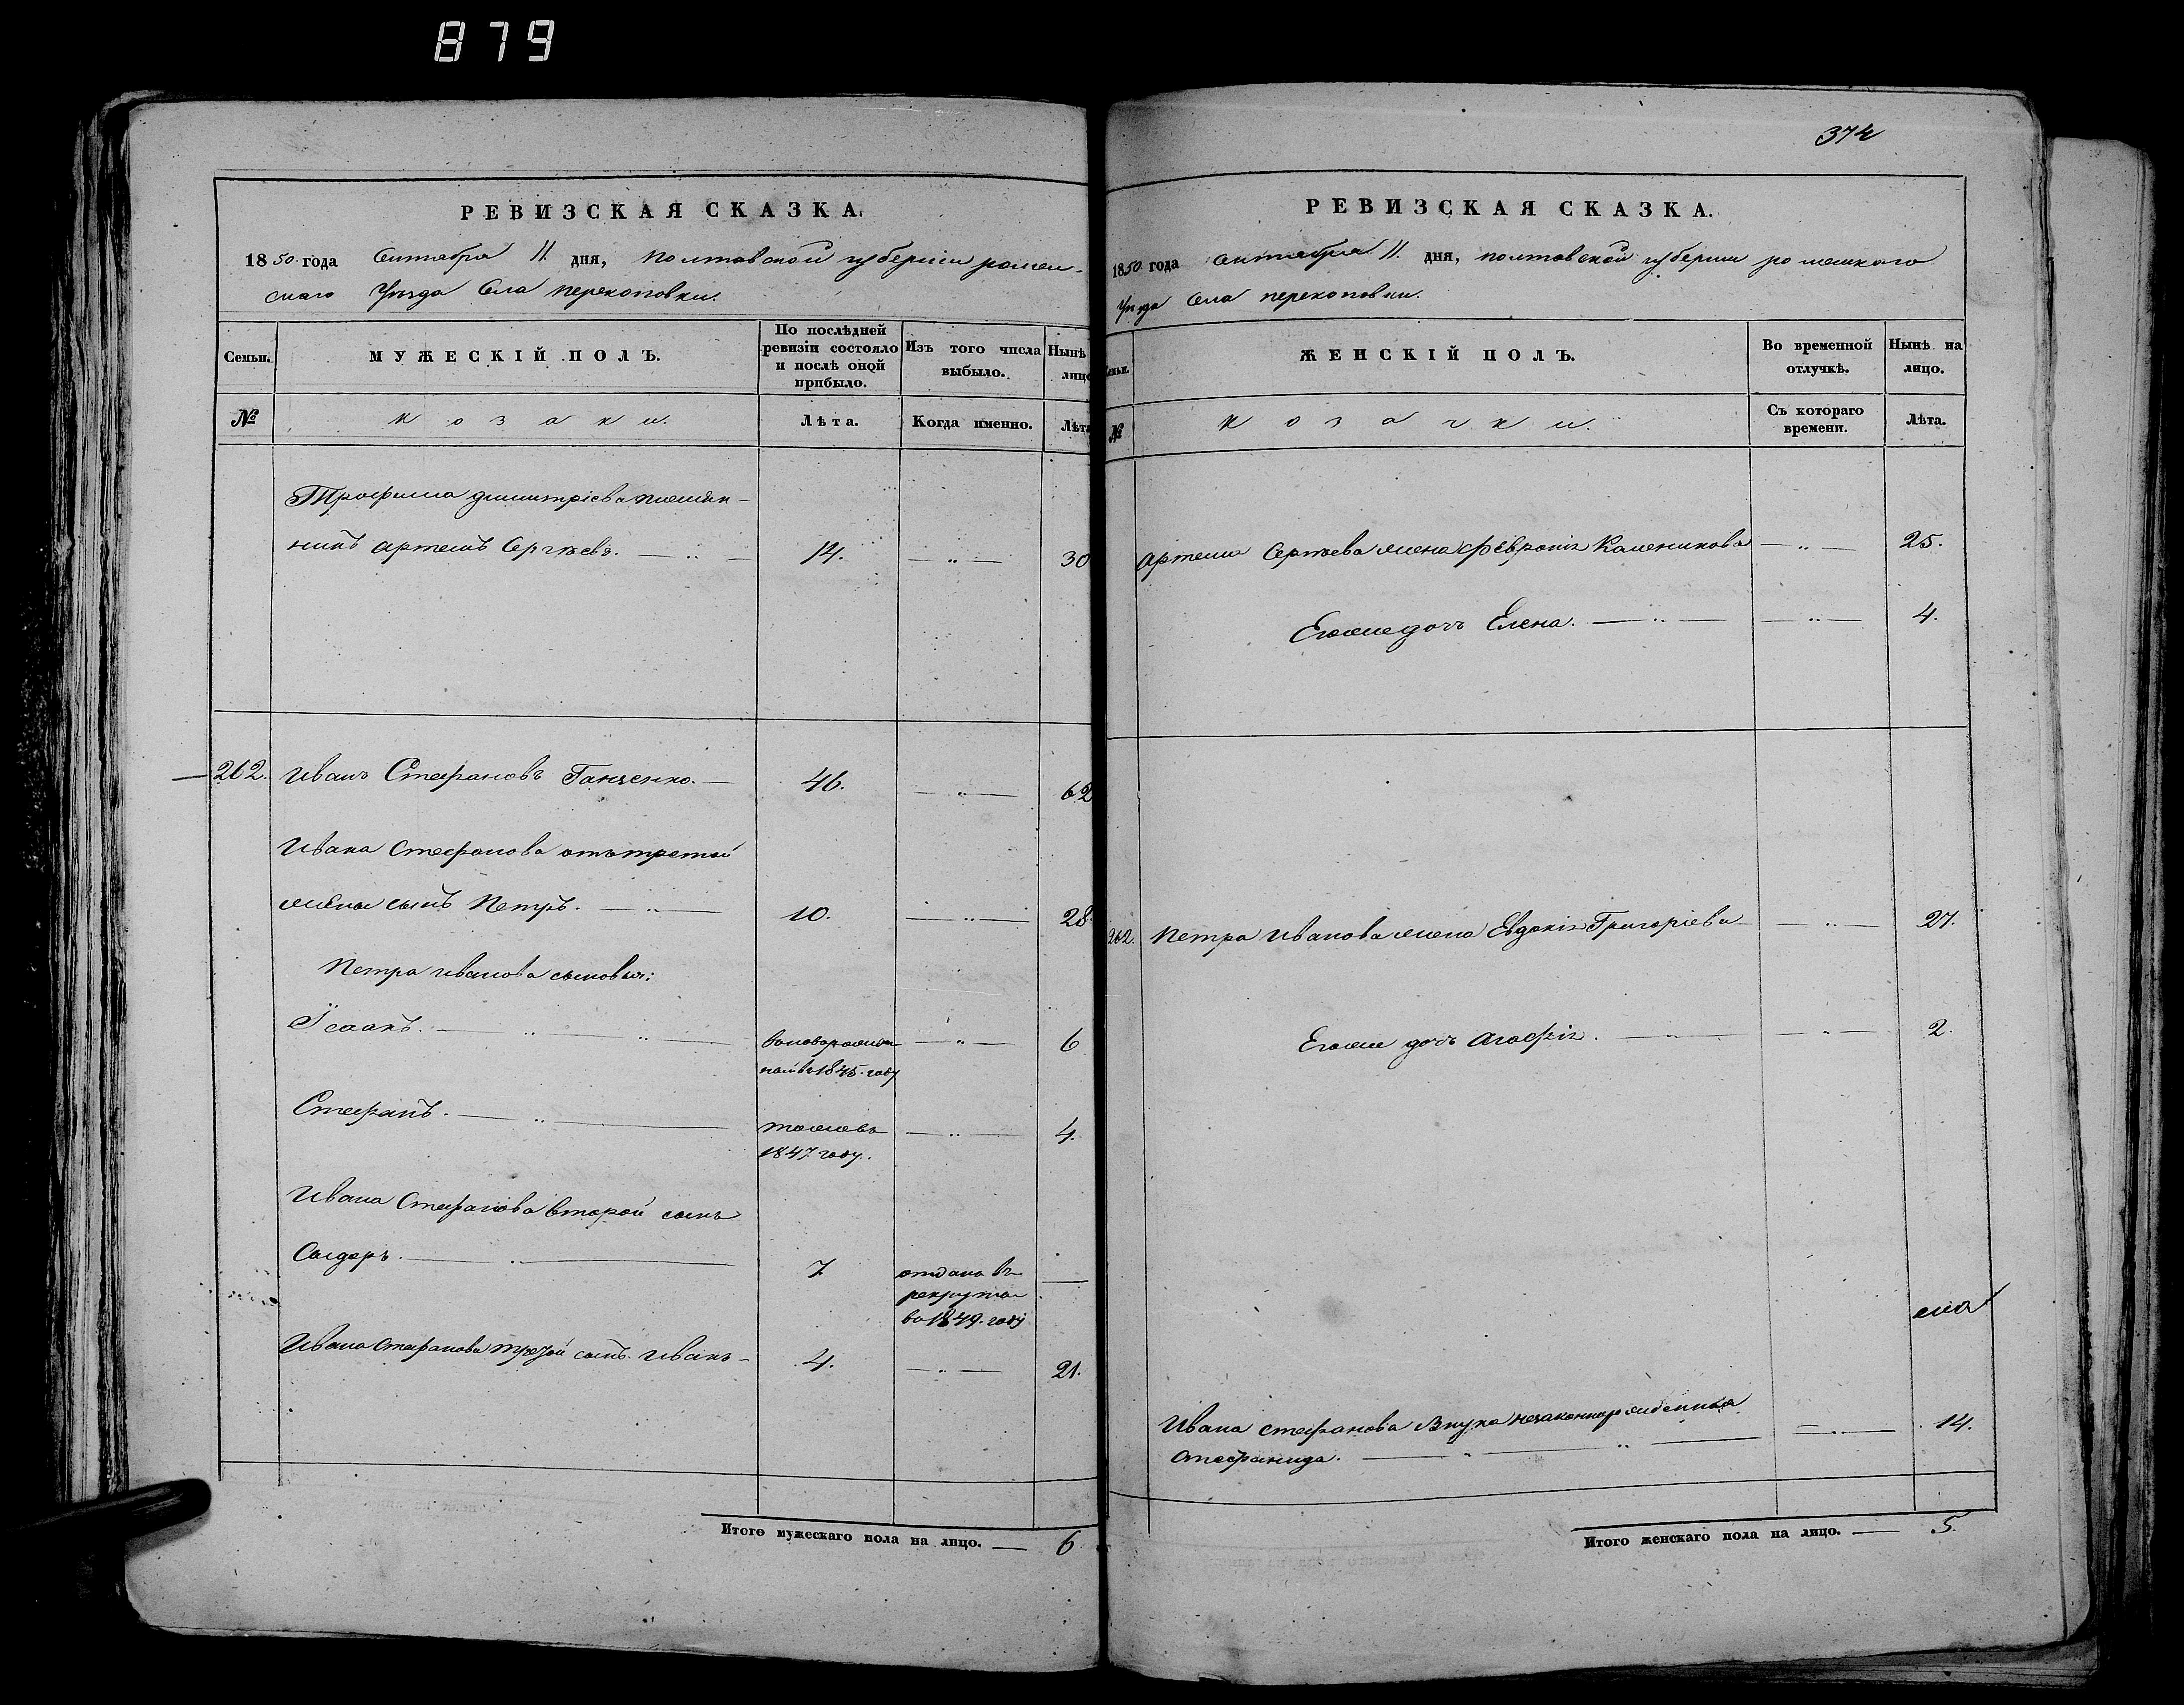 879
РЕВИЗСКАЯ СКАЗКА.
1850 года Сентября 11 дня, полтавской губернии ромен-
скаго Уезда Села перекоповки.
Семьи.
МУЖЕСКІЙ ПОЛЪ.
По послѣдней ревизіи состояло и послѣ оной прибыло.
Изъ того числа выбыло.
Нынѣ лицо
№
козаки.
Лѣта.
Когда именно.
Лѣта
Трофима димитріева племян-
никъ артемъ Сергѣевъ. 14. 30
262. Иванъ Стефановъ Ганженко. 46. 62
Ивана Стефанова отъ третей
жены сынъ Петръ. 10. 28.
Петра иванова сыновья:
Ісаакъ. 6
въ 1845. году
Стефанъ. тожевъ 4.
1847. году.
Ивана Стефанова второй сынъ
Сидоръ. 7 отдано въ
рекруты
во 1849. году
Ивана Стефанова третій сынъ иванъ 4. 21.
Итого мужескаго пола на лицо. 6
374
РЕВИЗСКАЯ СКАЗКА.
1850 года Сентября 11. дня, полтавской губернии роменскаго
Уезда Села перекоповки.
Семьи.
ЖЕНСКІЙ ПОЛЪ.
Во временной отлучкѣ.
Нынѣ на лицо.
№
козачки.
Съ котораго времени.
Лѣта.
артема Сергѣева жена Февронія Каленикова 25.
Егоже дочь Елена. 4.
262. Петра Иванова жена Евдокія Григоріева 27.
Егоже дочь агафія. 2.
Ивана стефанова внука незаконнорожденная 14.
Стефанида.
Итого женскаго пола на лицо. 5.